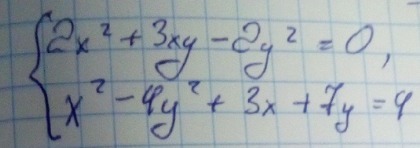 {2x² + 3xy - 2y² = 0,
x² - 4y² + 3x + 7y = 4